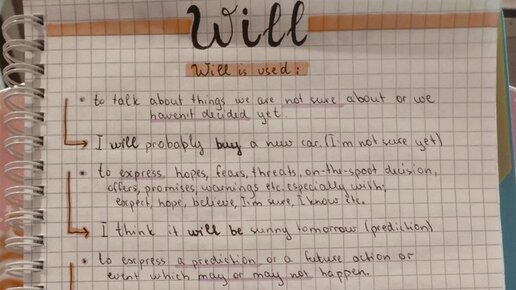 Will
Will is used:
• to talk about things we are not sure about or we
haven't decided yet.
I will probably buy a new car. (I'm not sure yet)
• to express hopes, fears, threats, on-the-spot decision,
offers, promises, warnings etc. especially with;
expect, hope, believe, I'm sure, I know etc.
I think it will be sunny tomorrow (prediction)
• to express a prediction or a future action or
event which may or may not happen.